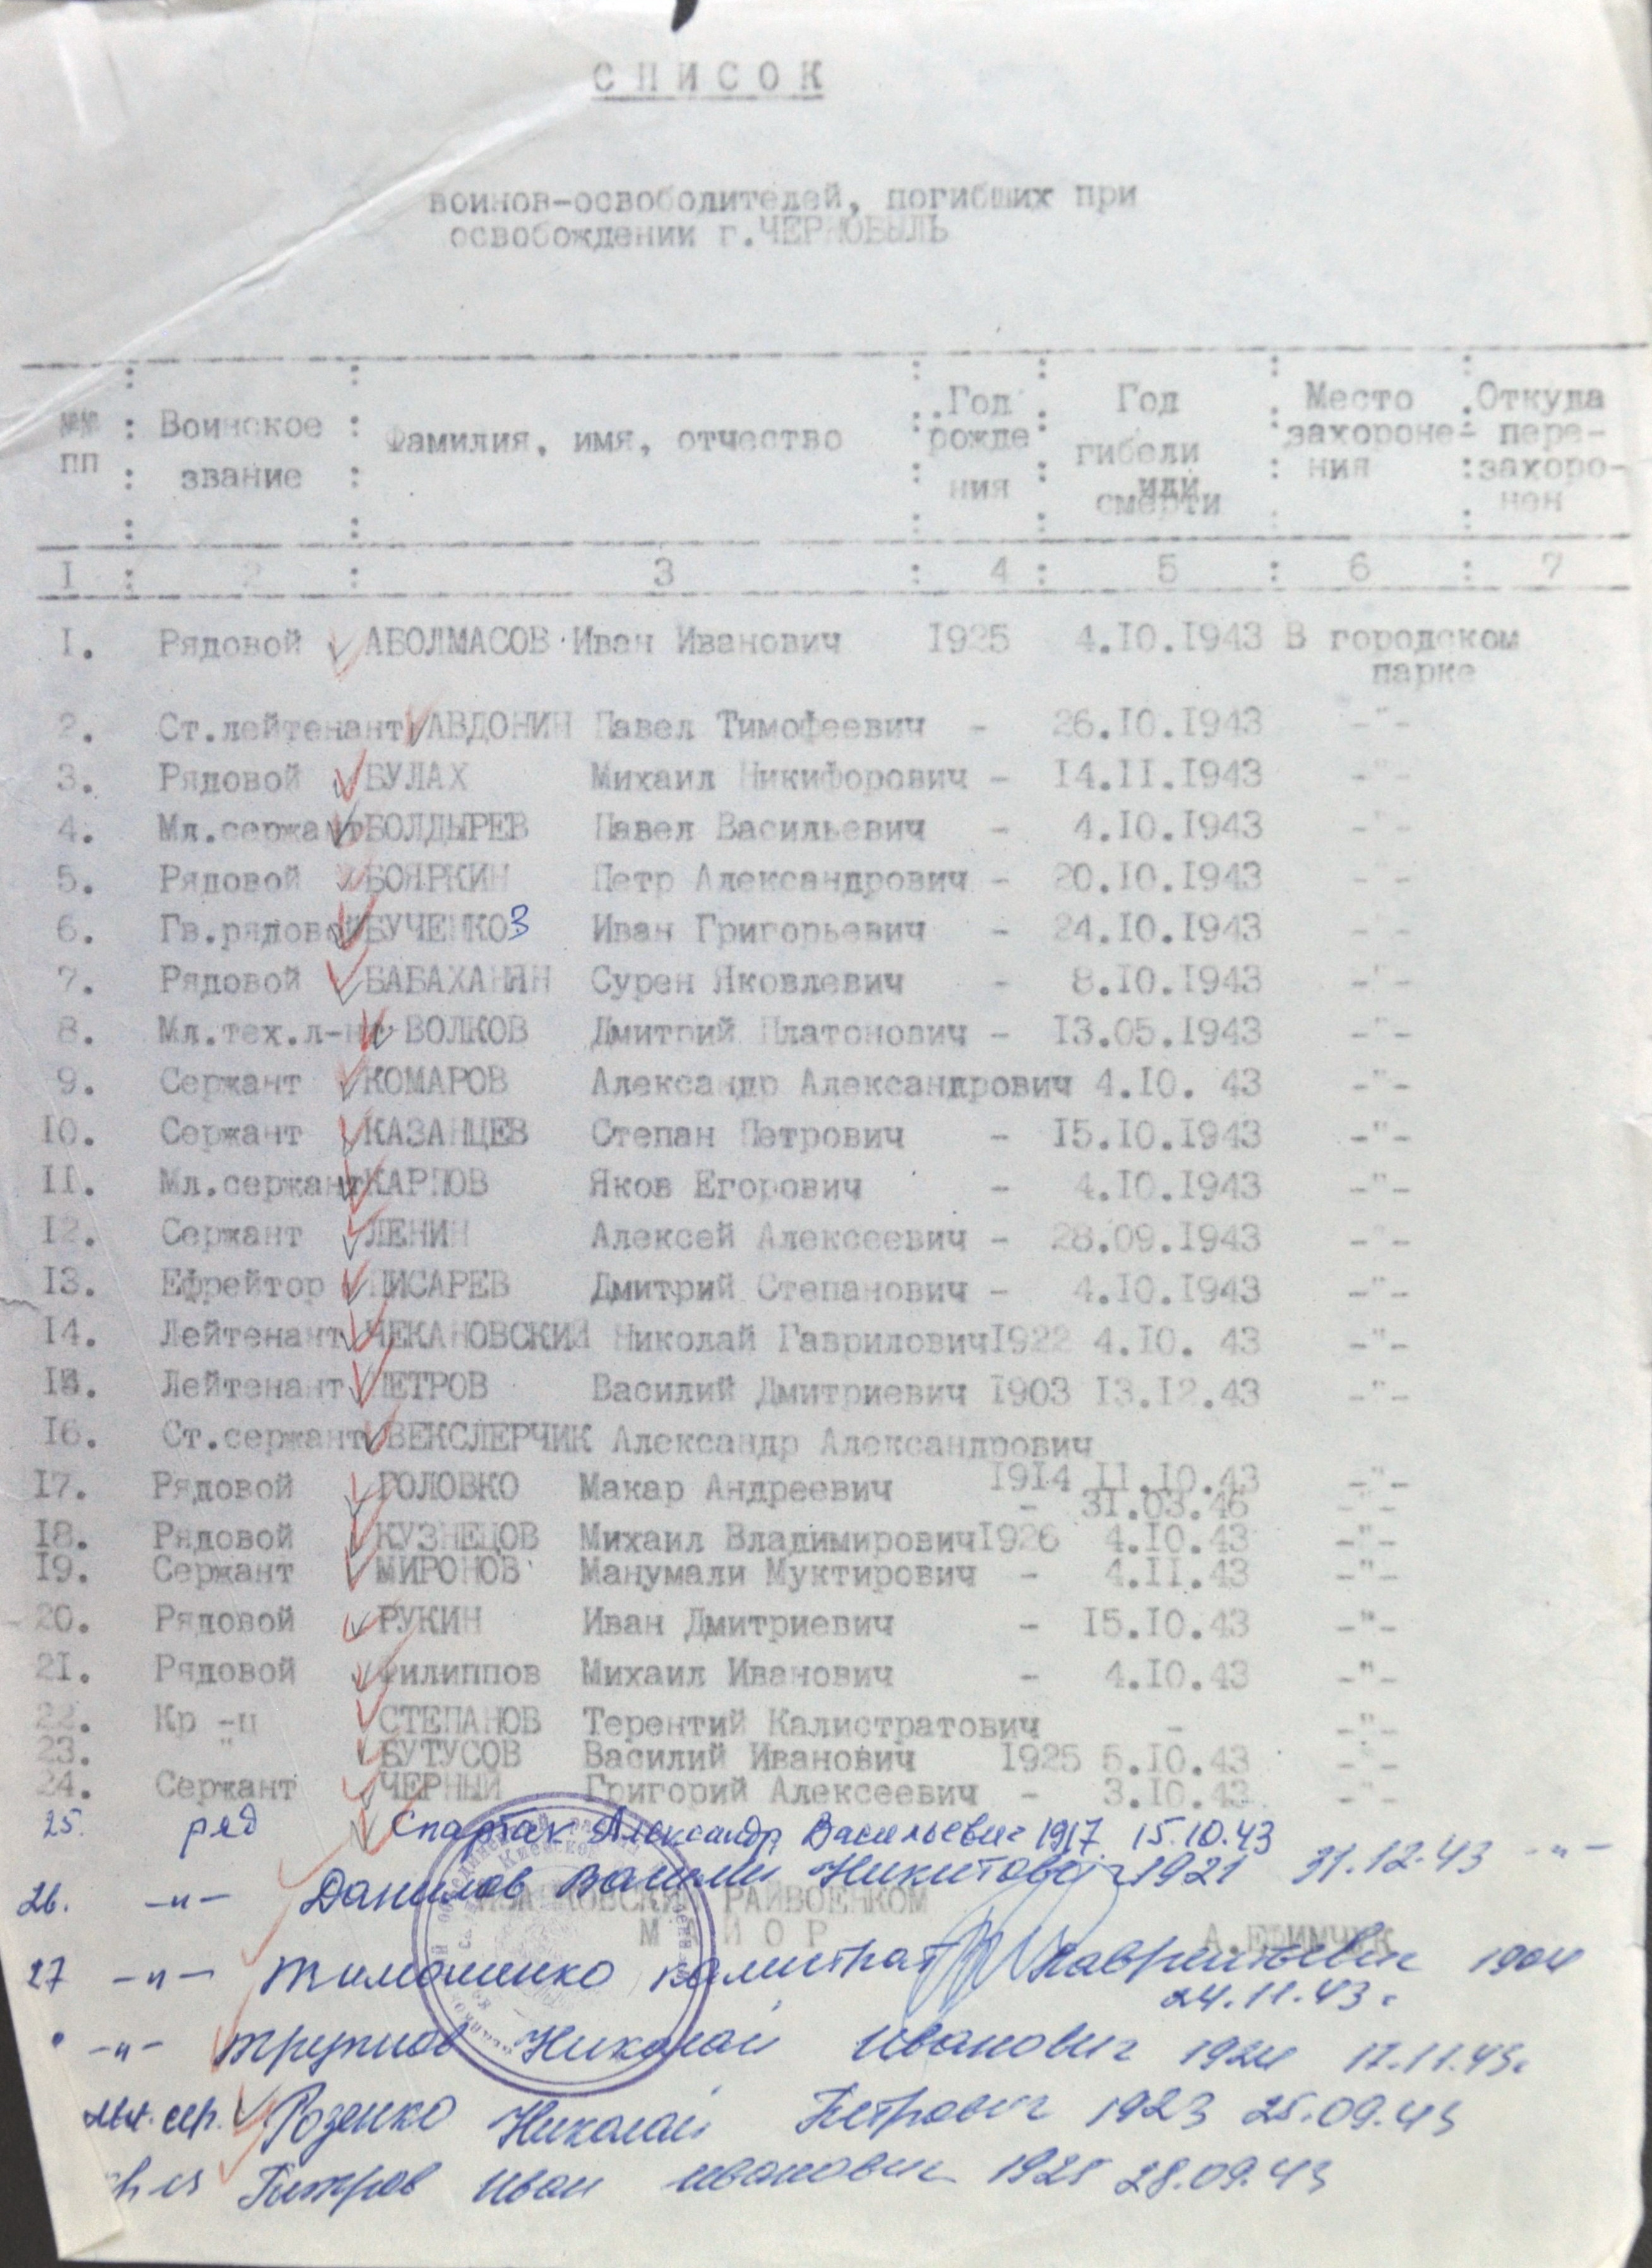 СПИСОК
воинов-освободителей, погибших при
освобождении г.ЧЕРНОБЫЛЬ
№№ пп : Воинское звание : Фамилия, имя, отчество : Год рожде ния : Год гибели или смерти : Место захороне- ния : Откуда пере- захоро- нен
I : 2 : 3 : 4 : 5 : 6 : 7
I. Рядовой АБОЛМАСОВ Иван Иванович I925 4.IO.I943 В городском
парке
2. Ст.лейтенант АВДОНИН Павел Тимофеевич - 26.IO.I943 -"-
3. Рядовой БУЛАХ Михаил Никифорович - I4.II.I943 -"-
4. Мл.сержант БОЛДЫРЕВ Павел Васильевич - 4.IO.I943 -"-
5. Рядовой БОЯРКИН Петр Александрович - 20.IO.I943 -"-
6. Гв.рядовой БУЧЕНКОЗ Иван Григорьевич - 24.IO.I943 -"-
7. Рядовой БАБАХАНЯН Сурен Яковлевич - 8.IO.I943 -"-
8. Мл.тех.л-нт ВОЛКОВ Дмитрий Платонович - I3.05.I943 -"-
9. Сержант КОМАРОВ Александр Александрович 4.IO. 43 -"-
IO. Сержант КАЗАНЦЕВ Степан Петрович - I5.IO.I943 -"-
II. Мл.сержант КАРПОВ Яков Егорович - 4.IO.I943 -"-
I2. Сержант ЛЕНИН Алексей Алексеевич - 28.09.I943 -"-
I3. Ефрейтор ПИСАРЕВ Дмитрий Степанович - 4.IO.I943 -"-
I4. Лейтенант ЧЕКАНОВСКИЙ Николай Гаврилович I922 4.IO. 43 -"-
I5. Лейтенант ПЕТРОВ Василий Дмитриевич I903 I3.I2.43 -"-
I6. Ст.сержант ВЕКСЛЕРЧИК Александр Александрович
I9I4 II.IO.43 -"-
I7. Рядовой ГОЛОВКО Макар Андреевич - 31.03.46 -"-
I8. Рядовой КУЗНЕЦОВ Михаил Владимирович I926 4.IO.43 -"-
I9. Сержант МИРОНОВ Манумали Муктирович - 4.II.43 -"-
20. Рядовой РУКИН Иван Дмитриевич - I5.IO.43 -"-
2I. Рядовой Филиппов Михаил Иванович - 4.IO.43 -"-
22. Кр -ц СТЕПАНОВ Терентий Калистратович - -"-
23. " БУТУСОВ Василий Иванович I925 5.IO.43 -"-
24. Сержант ЧЕРНЫЙ Григорий Алексеевич - 3.IO.43 -"-
25. ряд Спартак Александр Васильевич 1917 15.10.43
26. -"- Данилов Никитович 1921 31.12.43 -"-
РАЙВОЕНКОМ
МАЙОР А.ЕФИМЧУК
27 -"- Тимошенко Калистрат Лаврентьевич 1904
24.11.43г
-"- Николай Иванович 1924 17.11.43г
мл. сер. Розенко Николай Петрович 1923 25.09.43
Петров Иван Иванович 1925 28.09.43